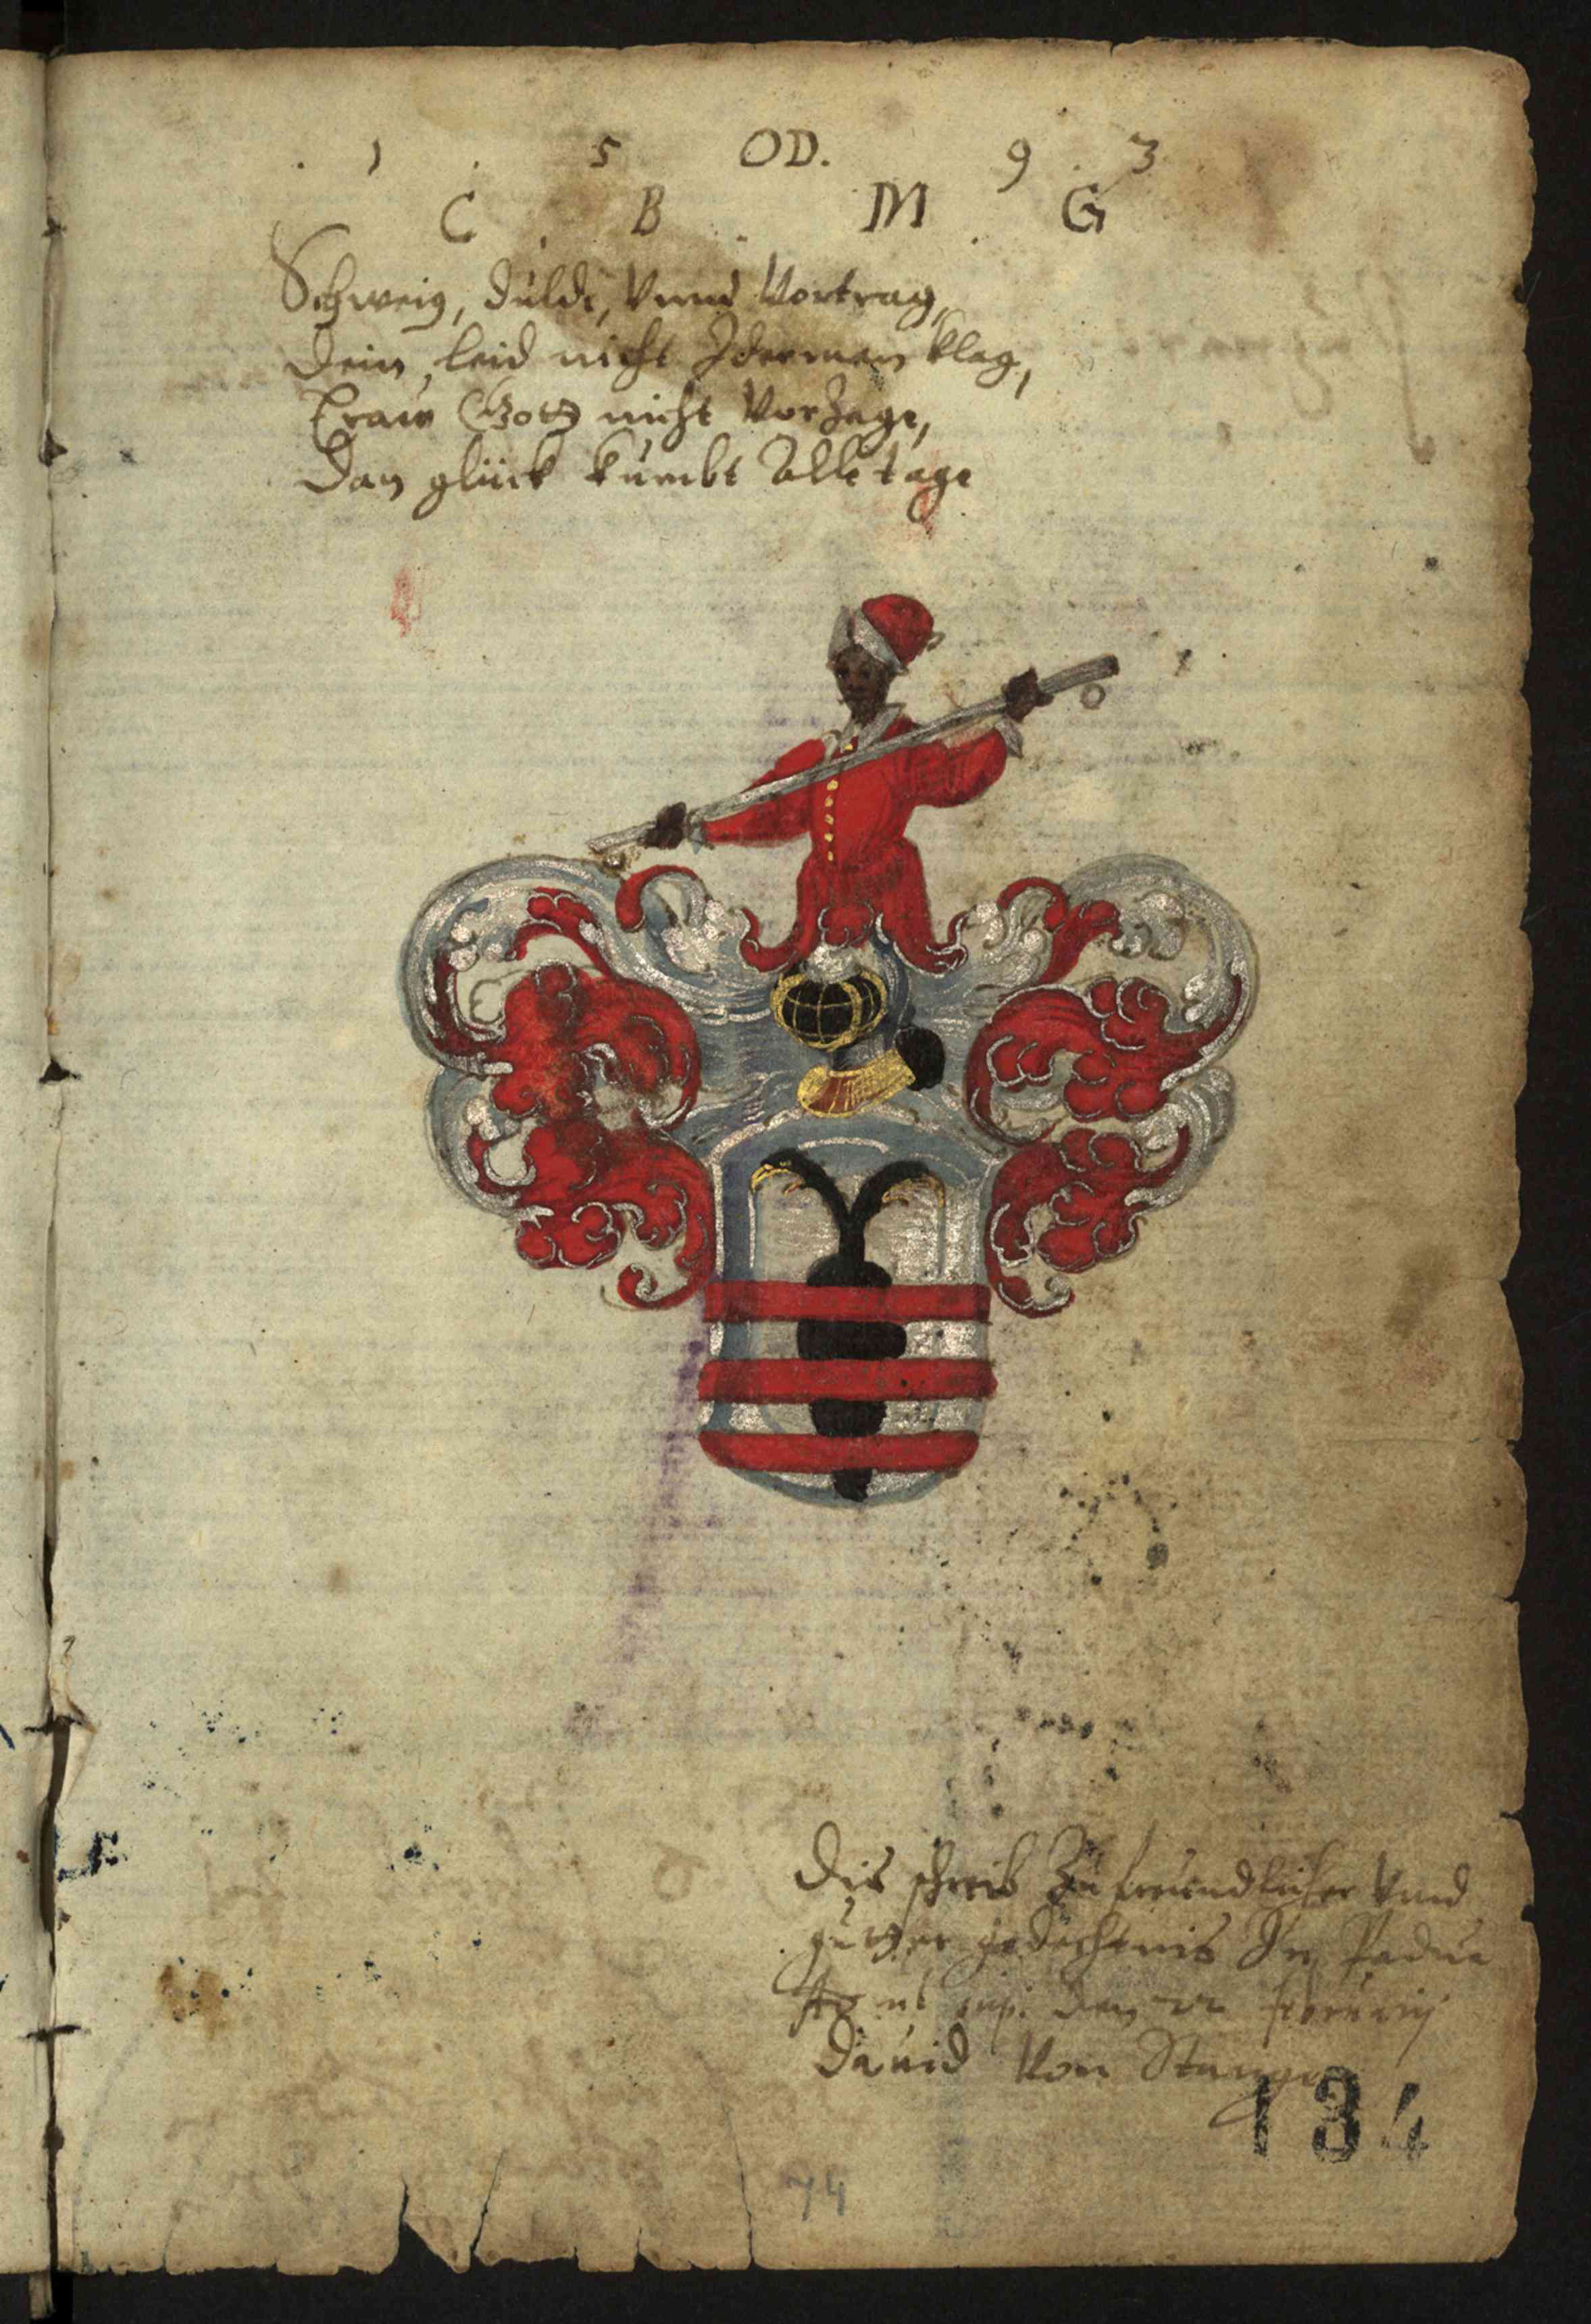 1 5 OD. 9 3
C B M G
Schweig, duldt, Vnnd Vortrag,
Dein leid nicht Iderman klag,
Traw Gott nicht VorZage,
Dan glück kumbt Alle tage
Dis schreib Zu freundlicher Vnd
gutter gedechtnis In Padua
Ao ut sup: den 22 februarij
Dauid Von Stange
134
74